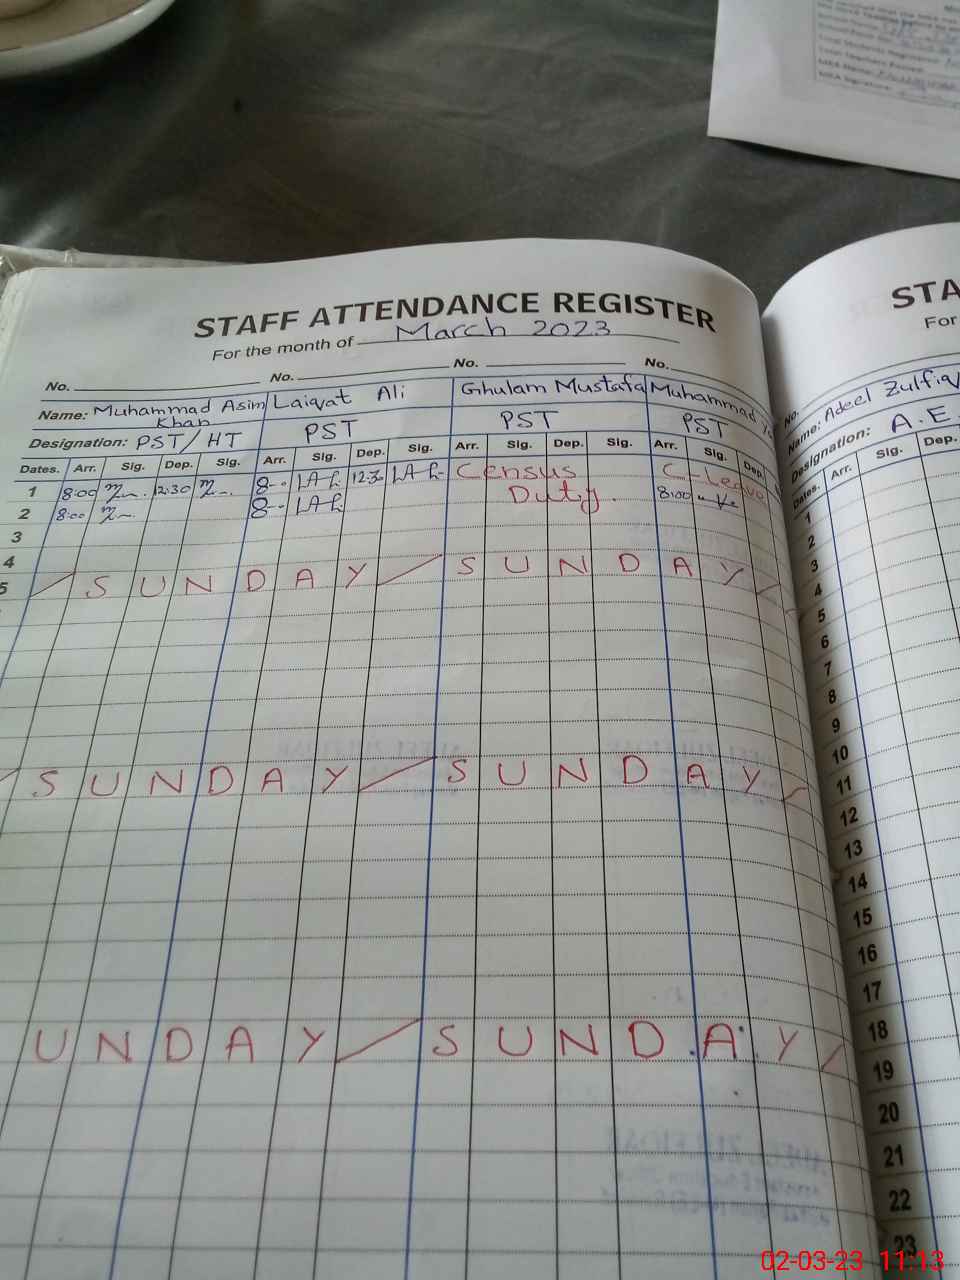 STAFF ATTENDANCE REGISTER
For the month of March 2023
No. No. No. No.
Name: Muhammad Asim Khan Laiqat Ali Ghulam Mustafa Muhammad
Designation: PST/HT PST PST PST
Dates. Arr. Sig. Dep. Sig. Arr. Sig. Dep. Sig. Arr. Sig. Dep. Sig. Arr. Sig. Dep.
1 8:00 12:30 8-- LA 12:30 LA Census C-Leave
2 8:00 8-- LA Duty. 8:00
3
4
5 SUNDAY SUNDAY
SUNDAY SUNDAY
UNDAY SUNDAY
STA
For
No.
Name: Adeel Zulfiq
Designation: A.E.
Dates. Arr. Sig. Dep.
1
2
3
4
5
6
7
8
9
10
11
12
13
14
15
16
17
18
19
20
21
22
23
02-03-23 11:13